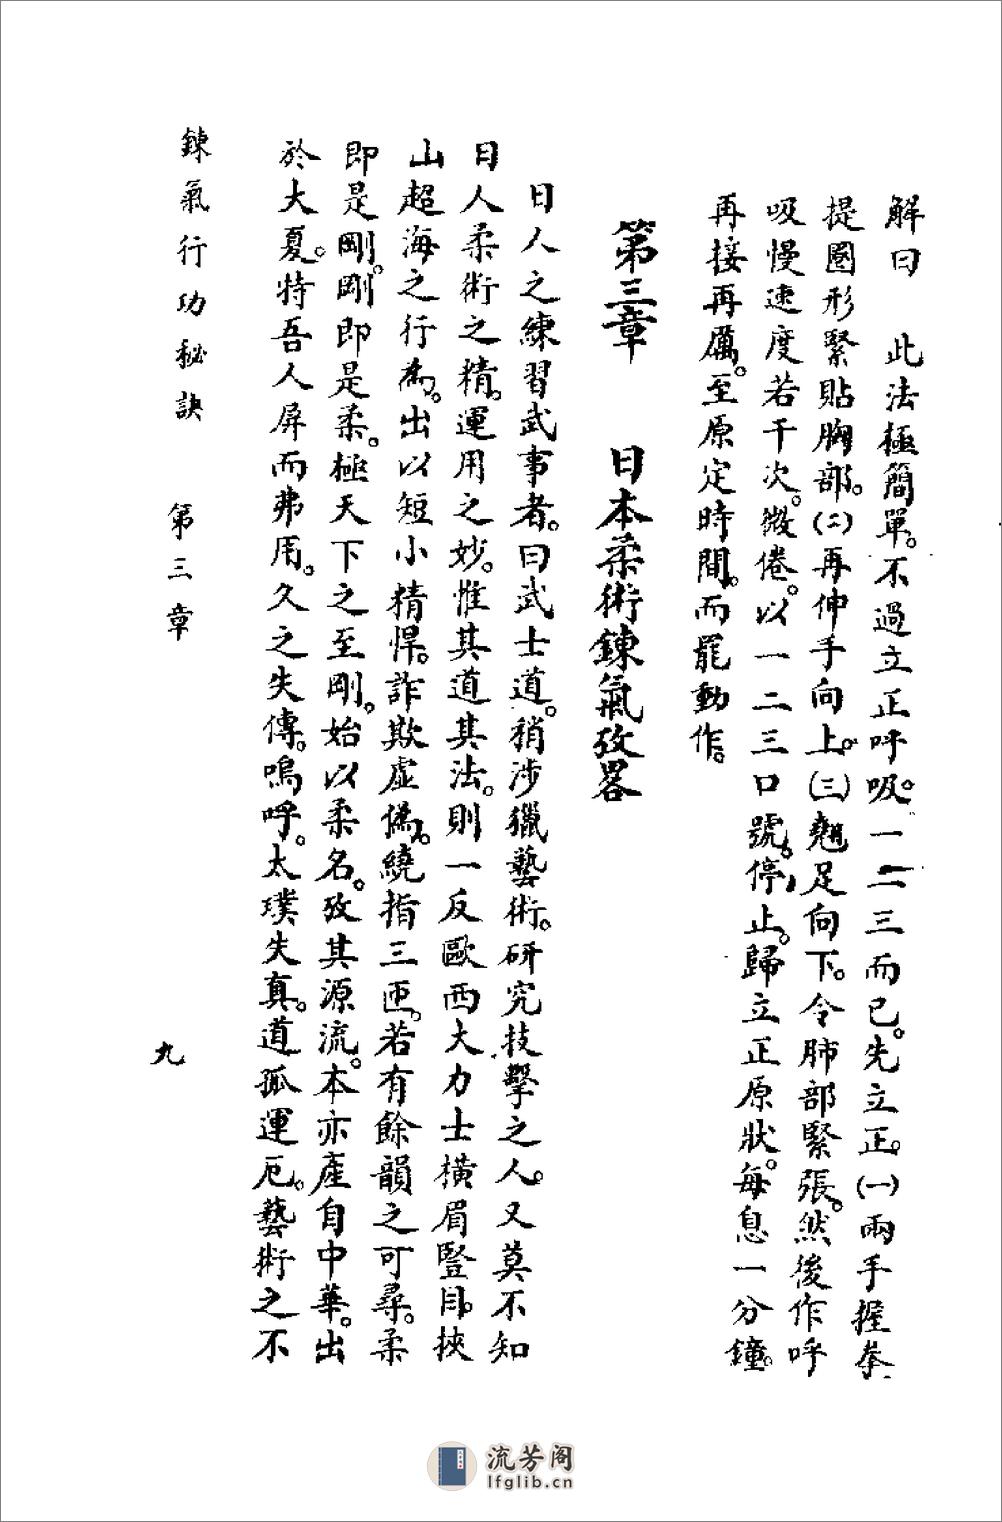 解曰　此法極簡單。不過立正呼吸。一二三而已。先立正。(一)兩手握拳
提圜形緊貼胸部。(二)再伸手向上。(三)翹足向下。令肺部緊張。然後作呼
吸慢速度若干次。微倦。以一二三口號。停止。歸立正原狀。每息一分鐘。
再接再厲。至原定時間。而罷動作。
第三章　日本柔術鍊氣攷畧
日人之練習武事者。曰武士道。稍涉獵藝術。研究技擊之人。又莫不知
日人柔術之精。運用之妙。惟其道其法。則一反歐西大力士橫眉豎目。挾
山超海之行為。出以短小精悍。詐欺虛偽。繞指三匝。若有餘韻之可尋。柔
即是剛。剛即是柔。極天下之至剛。始以柔名。攷其源流。本亦產自中華。出
於大夏。特吾人屏而弗用。久之失傳。嗚呼。太璞失真。道孤運厄。藝術之不
鍊氣行功秘訣　第三章　九
流芳阁
lfglib.cn